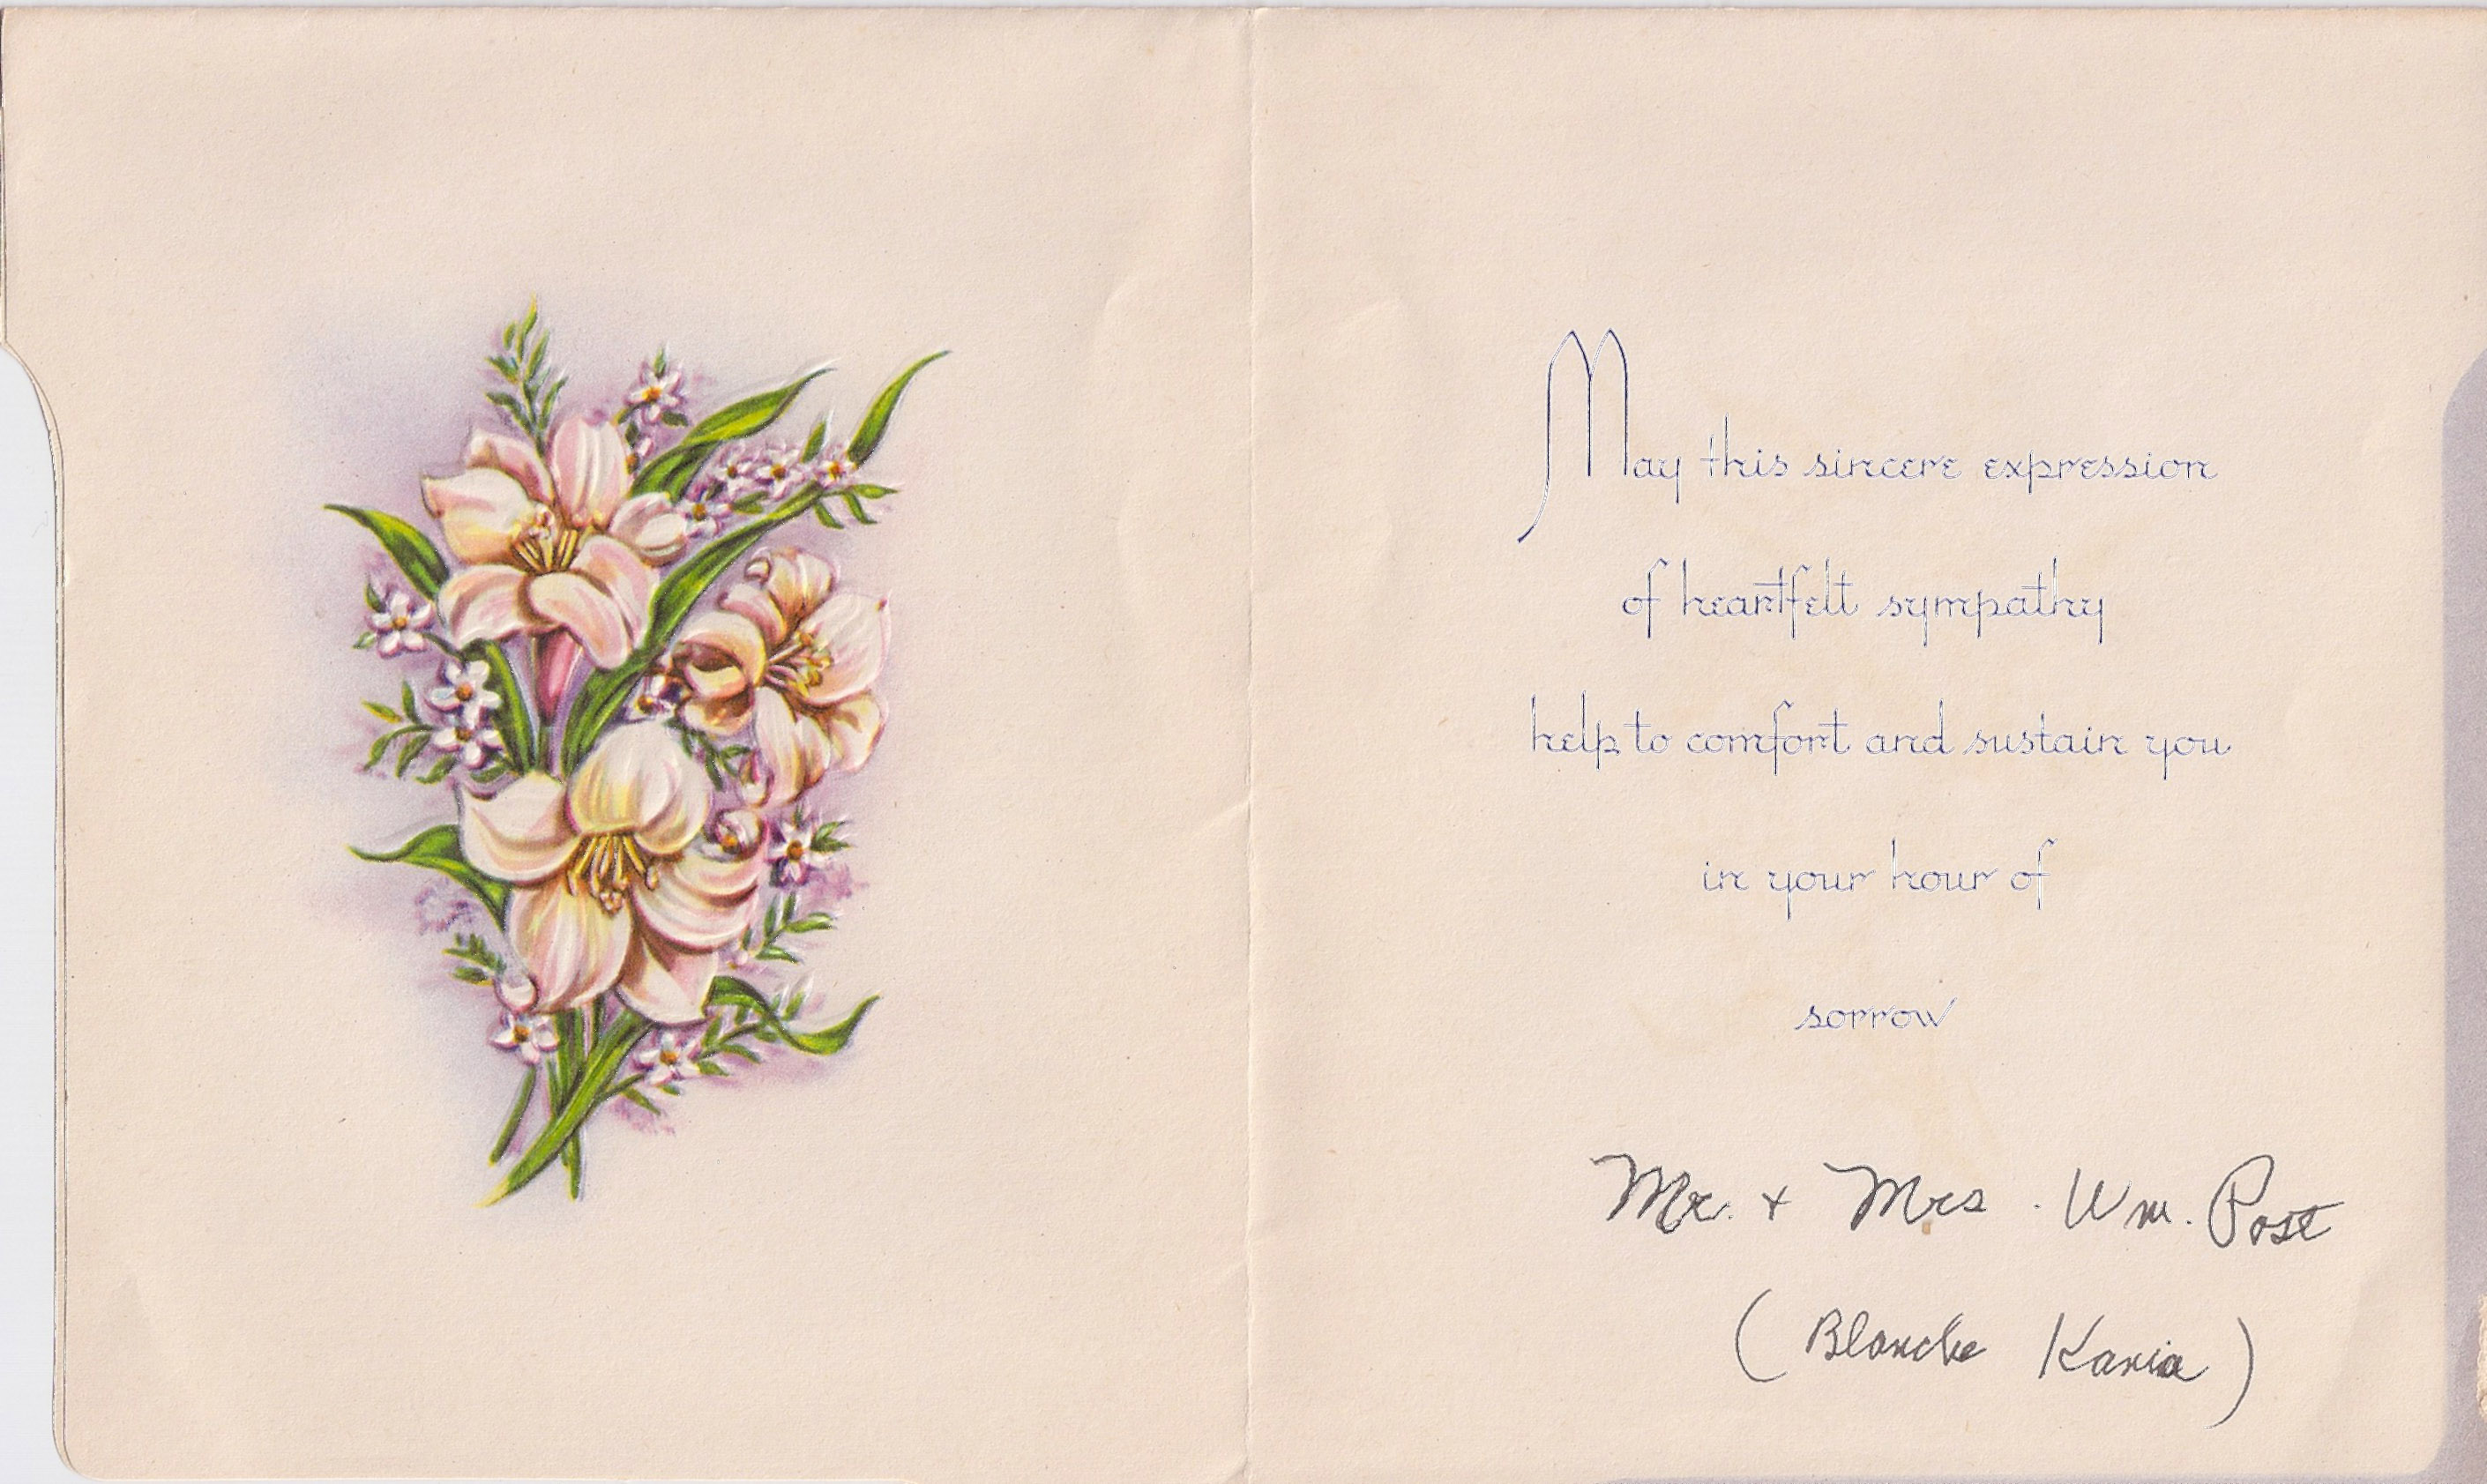 May this sincere expression
of heartfelt sympathy
help to comfort and sustain you
in your hour of
sorrow
Mr. + Mrs. Wm. Post
(Blanche Kania)